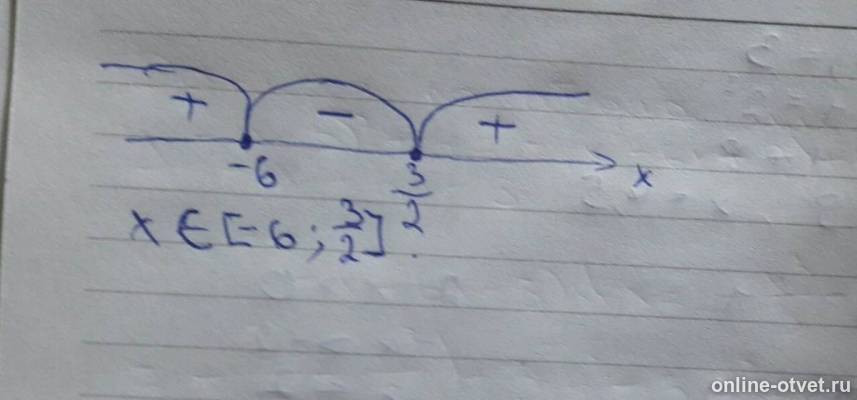 + − +
-6 3/2 x
x ∈ [-6; 3/2].
online-otvet.ru